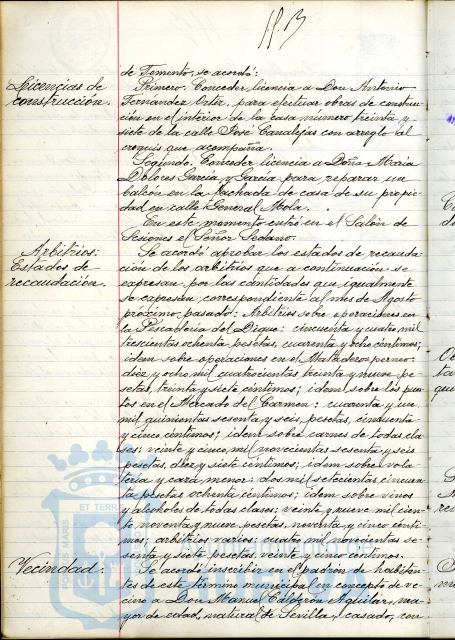 de Fomento, se acordó:
Licencias de construcción.
Primero. Conceder licencia a Don Antonio
Fernández Ortiz, para efectuar obras de construc-
ción en el interior de la casa número treinta y
siete de la calle José Canalejas con arreglo al
croquis que acompaña.
Segundo. Conceder licencia a Doña María
Dolores García y García para reparar un
balcón en la fachada de casa de su propie-
dad en calle General Mola.
En este momento entró en el Salón de
Sesiones el Señor Sedano.
Arbitrios:
Estados de
recaudación.
Se acordó aprobar los estados de recauda-
ción de los arbitrios que a continuación se
expresan, por las cantidades que igualmente
se expresan, correspondiente al mes de Agosto
próximo pasado: Arbitrios sobre operaciones en
la Pescadería del Dique: cincuenta y cuatro mil
trescientas ochenta pesetas, cuarenta y ocho céntimos;
idem sobre operaciones en el Matadero:
diez y ocho mil cuatrocientas treinta y nueve pe-
setas, treinta y siete céntimos; idem sobre los pues-
tos en el Mercado del Carmen: cuarenta y un
mil quinientas sesenta y seis pesetas, cincuenta
y cinco céntimos; idem sobre carnes de todas cla-
ses: veinte y cinco mil novecientas sesenta y seis
pesetas, diez y siete céntimos; idem sobre vola-
tería y caza menor: dos mil setecientas cincuen-
ta pesetas ochenta céntimos; idem sobre vinos
y alcoholes de todas clases: veinte y nueve mil cien-
to noventa y nueve pesetas, noventa y cinco cénti-
mos; arbitrios varios: cuatro mil novecientas se-
senta y siete pesetas, veinte y cinco céntimos.
Vecindad.
Se acordó inscribir en el padrón de habitan-
tes de este término municipal en concepto de ve-
cino a Don Manuel Calderón Aguilar, ma-
yor de edad, natural de Sevilla, casado, con-
ET TERR